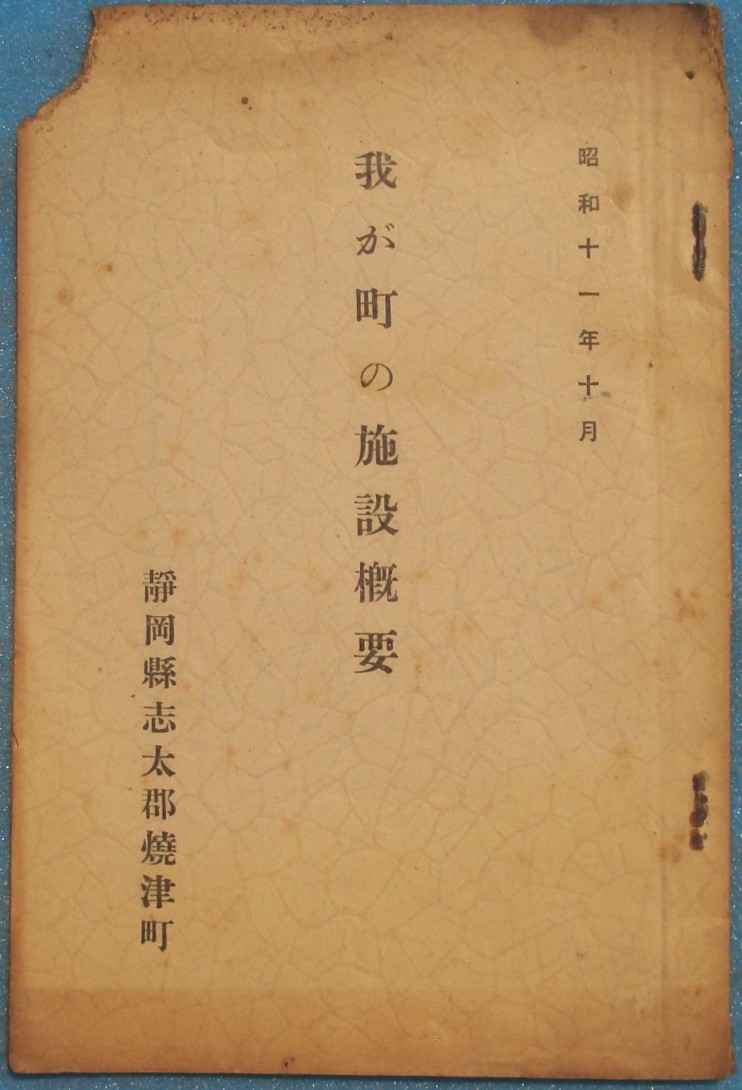 昭和十一年十月
我が町の施設概要
靜岡縣志太郡燒津町